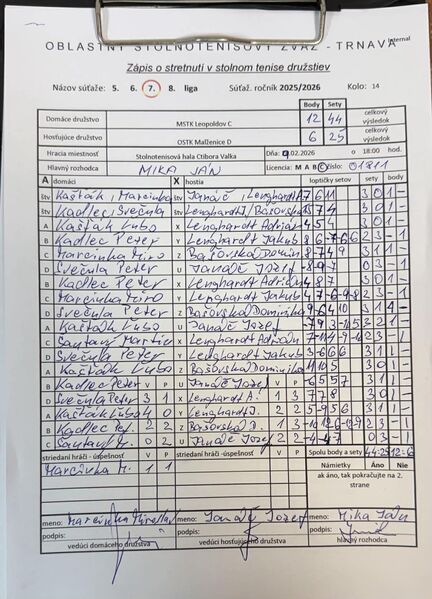 OBLASTNÝ STOLNOTENISOVÝ ZVÄZ - TRNAVA
Internal
Zápis o stretnutí v stolnom tenise družstiev
Názov súťaže: 5. 6. 7. 8. liga Súťaž. ročník 2025/2026 Kolo: 14
Body Sety celkový výsledok
Domáce družstvo MSTK Leopoldov C 12 44
Hosťujúce družstvo OSTK Malženice D 6 25 celkový výsledok
Hracia miestnosť Stolnotenisová hala Ctibora Valka Dňa .02.2026 o 18:00 hod.
Hlavný rozhodca MIKA JÁN Licencia: M A B C číslo: 01811
A domáci X hostia loptičky setov sety body
štv Kašták, Marcinka štv Janáč, Lenghardt A 7 6 11 3 0 1 -
štv Kadlec, Svečula štv Lenghardt J/Bašovská
A Kašták Ľubo X Lenghardt Adrián 4 5 4 3 0 1 -
B Kadlec Peter Y Lenghardt Jakub 2 3 - 1
C Marcinka Miro Z Bašovská Dominika 3 1 1 -
D Svečula Peter U Janáč Jozef 0 3 - 1
B Kadlec Peter X Lenghardt Adrián 4 8 7 3 0 1 -
C Marcinka Miro Y Lenghardt Jakub 2 3 - 1
D Svečula Peter Z Bašovská Dominika 3 1 1 -
A Kašták Ľubo U Janáč Jozef 3 2 1
C Šantavý Martin X Lenghardt Adrián 2 3 - 1
D Svečula Peter Y Lenghardt Jakub 3 1 1 -
A Kašták Ľubo Z Bašovská Dominika 4 10 5 3 0 1 -
B Kadlec Peter V P U Janáč Jozef V P -6 5 5 7 3 1 1 -
D Svečula Peter 3 1 X Lenghardt A. 1 3 7 7 8 3 0 1 -
A Kašták Ľubo 4 0 Y Lenghardt J. 2 2 5 -9 5 6 3 1 1 -
B Kadlec Pet. 2 2 Z Bašovská D. 1 3 2 3 - 1
C Šantavý M. 0 2 U Janáč Jozef 2 2 -4 -4 -7 0 3 - 1
striedaní hráči - úspešnosť V P striedaní hráči - úspešnosť V P Spolu body a sety 44:25 12:6
Marcinka M. 1 1 Námietky Áno Nie
ak áno, tak pokračujte na 2. strane
meno: Marcinka meno: Janáč Jozef meno: Mika Ján
podpis: podpis: podpis:
vedúci domáceho družstva vedúci hosťujúceho družstva hlavný rozhodca